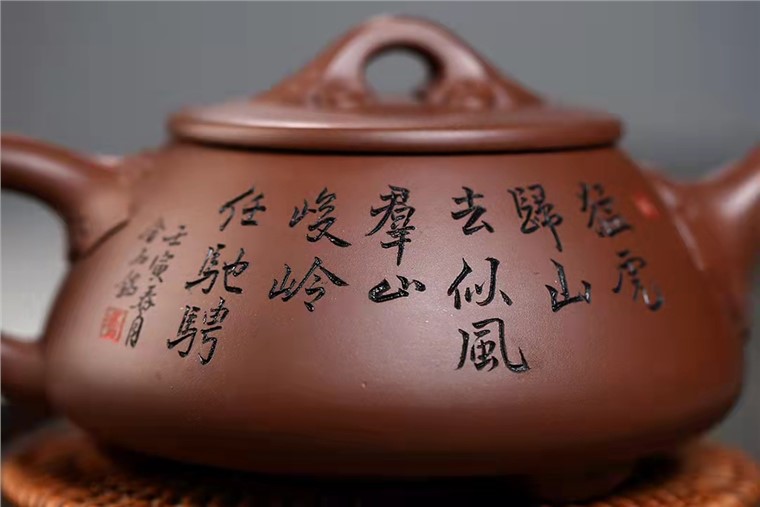 猛虎
歸山
去似風
羣山
峻岭
任馳騁
壬寅春月